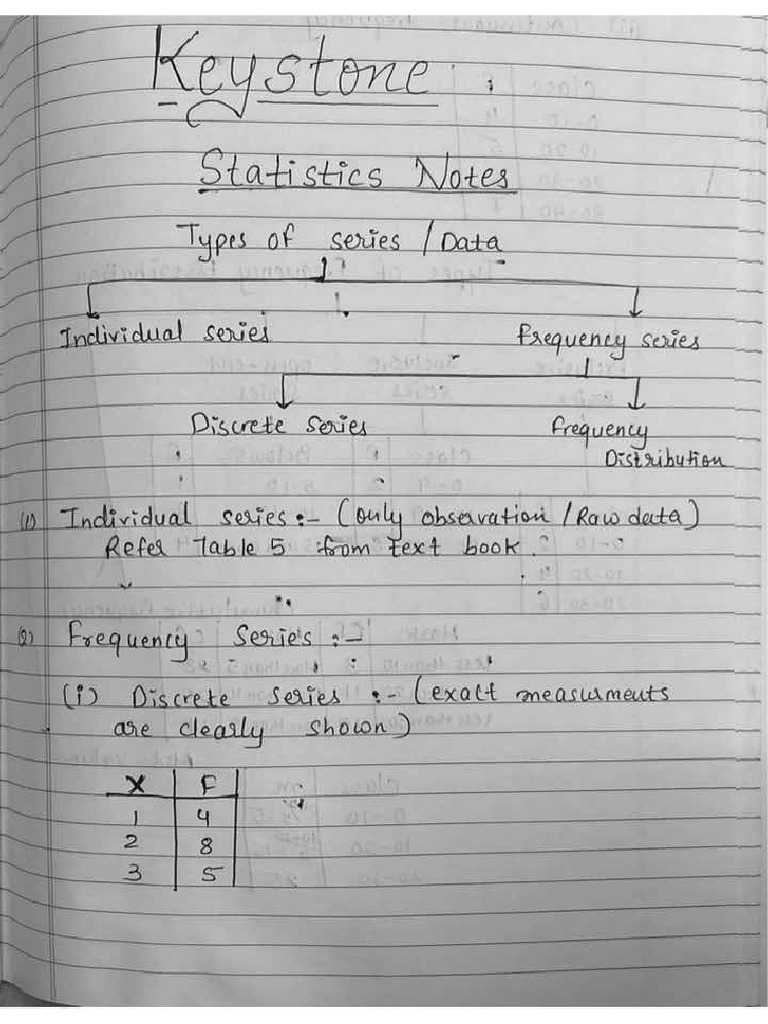 Keystone
Statistics Notes
Types of series / Data
Individual series
Frequency series
Discrete Series
Frequency
Distribution
(1) Individual series :- (only observation / Raw data)
Refer Table 5 from text book.
(2) Frequency Series :-
(i) Discrete Series :- (exact measurments
are clearly shown)
X F
1 4
2 8
3 5